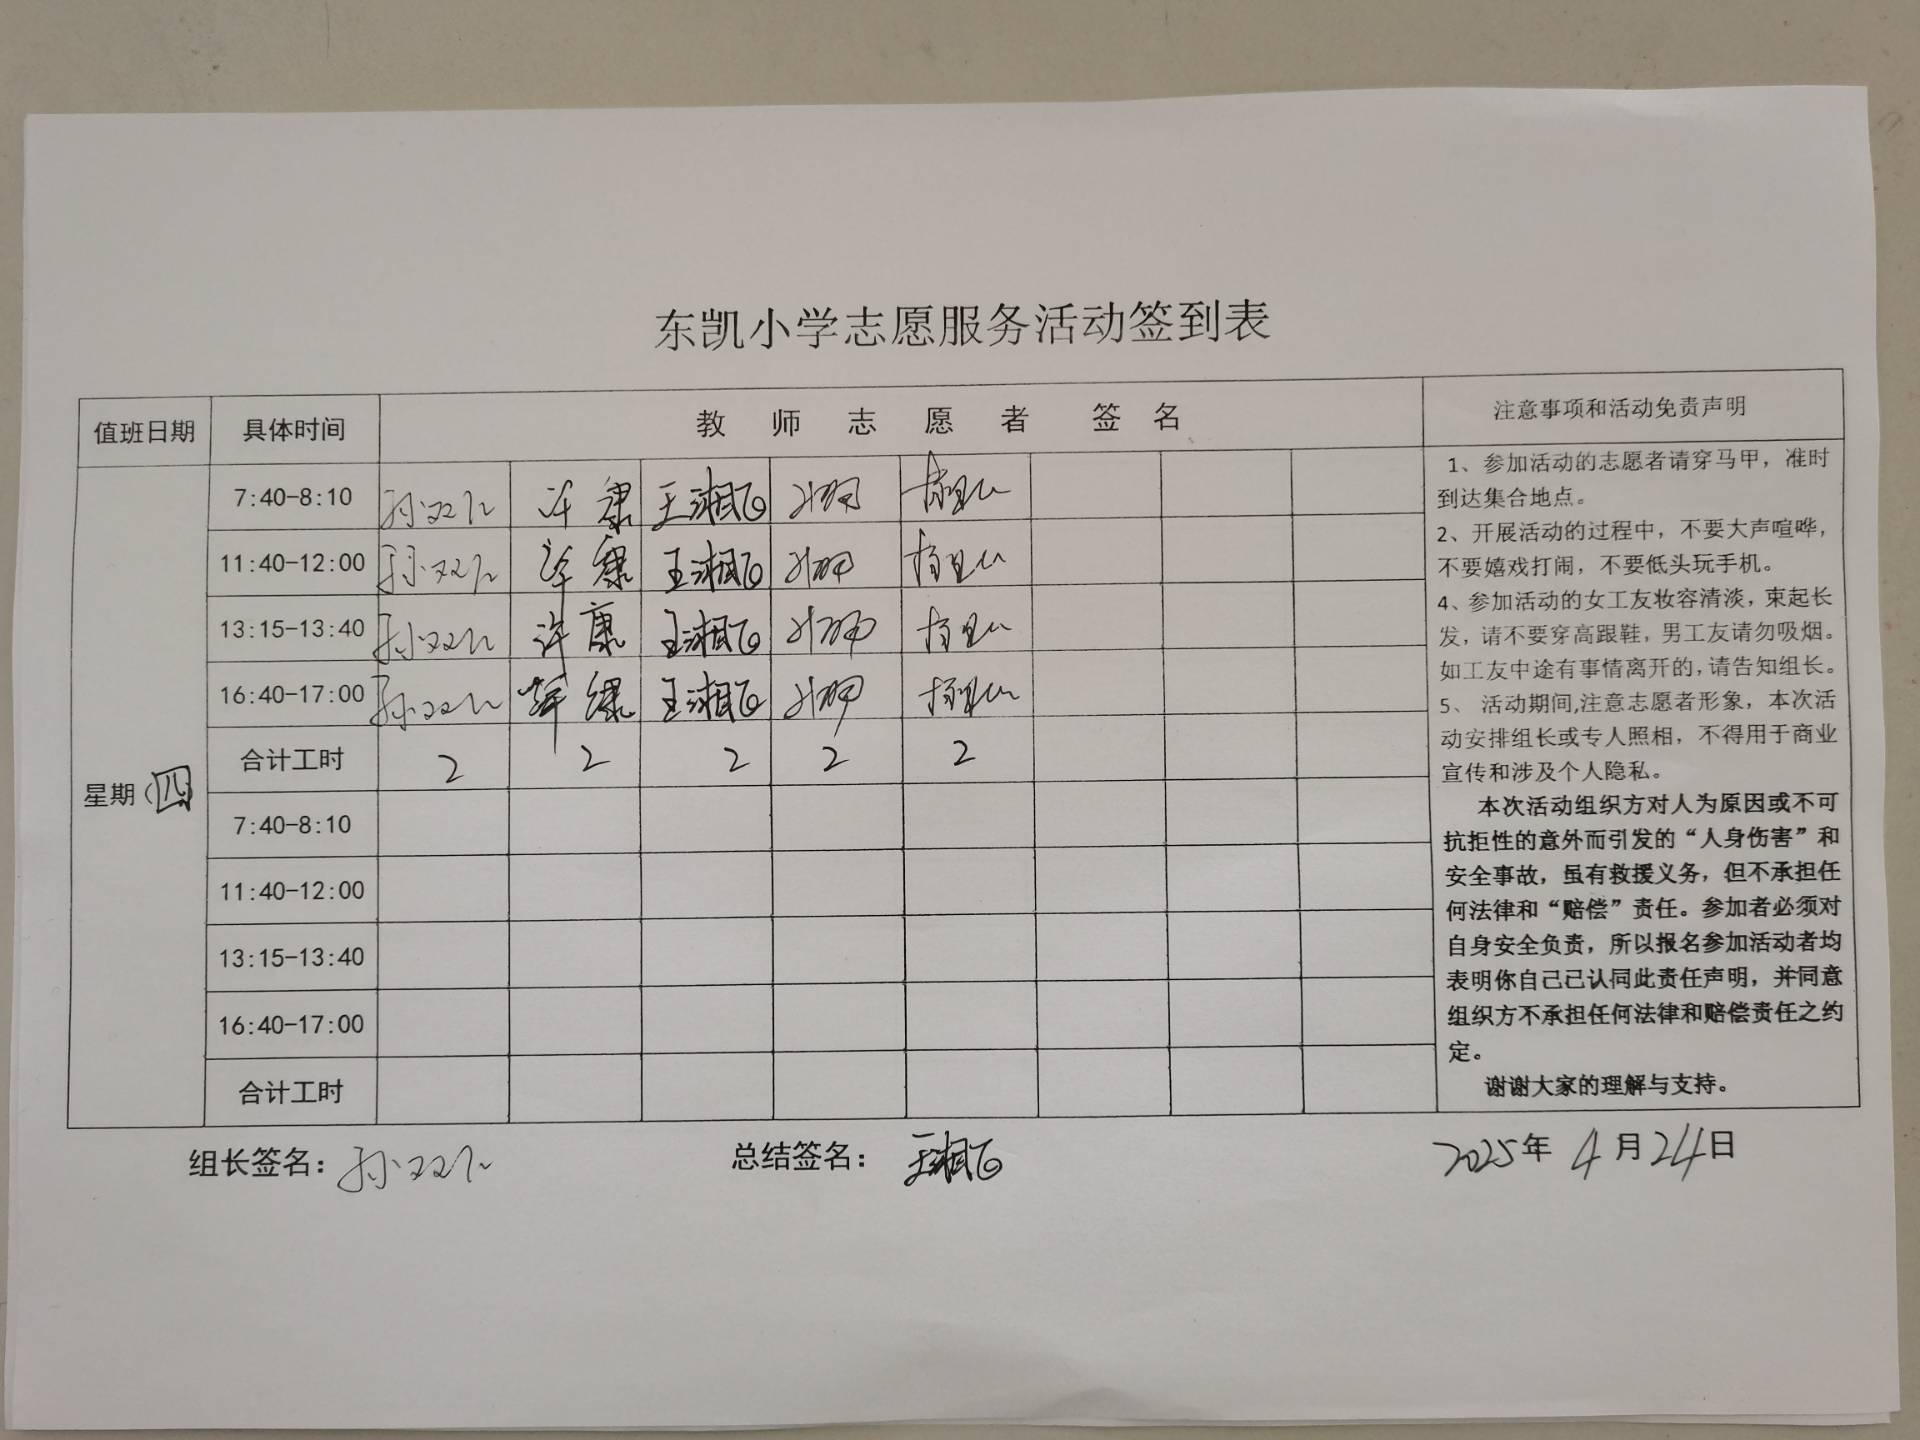 东凯小学志愿服务活动签到表
值班日期 具体时间 教 师 志 愿 者 签 名 注意事项和活动免责声明
星期(四)
7:40-8:10 许康 王湘飞
11:40-12:00 许康 王湘飞
13:15-13:40 许康 王湘飞
16:40-17:00 许康 王湘飞
合计工时 2 2 2 2 2
7:40-8:10
11:40-12:00
13:15-13:40
16:40-17:00
合计工时
1、参加活动的志愿者请穿马甲，准时
到达集合地点。
2、开展活动的过程中，不要大声喧哗，
不要嬉戏打闹，不要低头玩手机。
4、参加活动的女工友妆容清淡，束起长
发，请不要穿高跟鞋，男工友请勿吸烟。
如工友中途有事情离开的，请告知组长。
5、 活动期间,注意志愿者形象，本次活
动安排组长或专人照相，不得用于商业
宣传和涉及个人隐私。
本次活动组织方对人为原因或不可
抗拒性的意外而引发的“人身伤害”和
安全事故，虽有救援义务，但不承担任
何法律和“赔偿”责任。参加者必须对
自身安全负责，所以报名参加活动者均
表明你自己已认同此责任声明，并同意
组织方不承担任何法律和赔偿责任之约
定。
谢谢大家的理解与支持。
组长签名： 总结签名： 王湘飞 2025年 4月24日